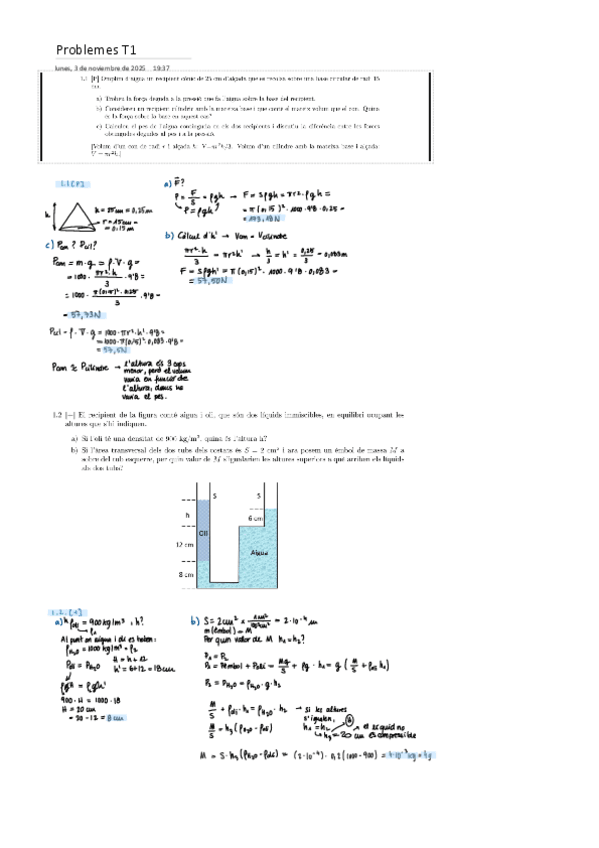 Problemes T1
lunes, 3 de noviembre de 2025 19:37
1.1 [F] Omplim d'aigua un recipient cònic de 25 cm d'alçada que es recolza sobre una base circular de radi 15
cm.
a) Trobeu la força deguda a la pressió que fa l'aigua sobre la base del recipient.
b) Considereu un recipient cilíndric amb la mateixa base i que conté el mateix volum que el con. Quina
és la força sobre la base en aquest cas?
c) Calculeu el pes de l'aigua continguda en els dos recipients i discutiu la diferència entre les forces
obtingudes degudes al pes i a la pressió.
[Volum d'un con de radi r i alçada h: V=πr²h/3. Volum d'un cilindre amb la mateixa base i alçada:
V = πr²h.]
1.1 [F]
h
h = 25cm = 0,25m
r = 15cm =
= 0,15m
a) F?
P = F/S = ρgh → F = Sρgh = πr²·ρgh =
P = ρgh
= π(0,15)²·1000·9'8·0,25 =
= 173,18N
b) Càlcul d'h' → Vcon = Vcilindre
πr²·h/3 = πr²h' → h/3 = h' = 0,25/3 = 0,083m
F = Sρgh' = π(0,15)²·1000·9'8·0,083 =
= 57,50N
c) Pcon? Pcil?
Pcon = m·g = ρ·V·g =
= 1000·πr²·h/3·9'8 =
= 1000·π(0,15)²·0,25/3·9'8 =
= 57,73N
Pcil = ρ·V·g = 1000·πr²·h'·9'8 =
= 1000·π(0,15)²·0,083·9'8 =
= 57,5N
Pcon ≈ Pcilindre → l'altura és 3 cops
menor, però el volum
varia en funció de
l'altura, doncs no
varia el pes.
1.2 [--] El recipient de la figura conté aigua i oli, que són dos líquids immiscibles, en equilibri ocupant les
altures que s'hi indiquen.
a) Si l'oli té una densitat de 900 kg/m³, quina és l'altura h?
b) Si l'àrea transversal dels dos tubs dels costats és S = 2 cm² i ara posem un èmbol de massa M a
sobre del tub esquerre, per quin valor de M s'igualarien les altures superiors a què arriben els líquids
als dos tubs?
S
S
h
6 cm
Oli
12 cm
Aigua
8 cm
1.2. [+]
a) ρoli = 900kg/m³, h?
Al punt on aigua i oli es troben:
ρH2O = 1000kg/m³ = ρ2
Poli = PH2O
H = h + 12
h' = 6+12 = 18cm
ρgH = ρgh'
900·H = 1000·18
H = 20cm
= 20-12 = 8cm
b) S = 2cm²
m(èmbol) = M
Per quin valor de M h1 = h2?
P1 = P2
P1 = Pèmbol + Poli = Mg/S + ρg·h1 = g(M/S + ρoli h1)
P2 = PH2O = ρH2O·g·h2
M/S + ρoli·h1 = ρH2O·h2
→ Si les altures
s'igualen,
h1 = h2
M/S = h1(ρH2O - ρoli)
M = S·h1(ρH2O - ρoli) = (2·10⁻⁴)·0,2(1000-900) = 4·10⁻³kg = 4g